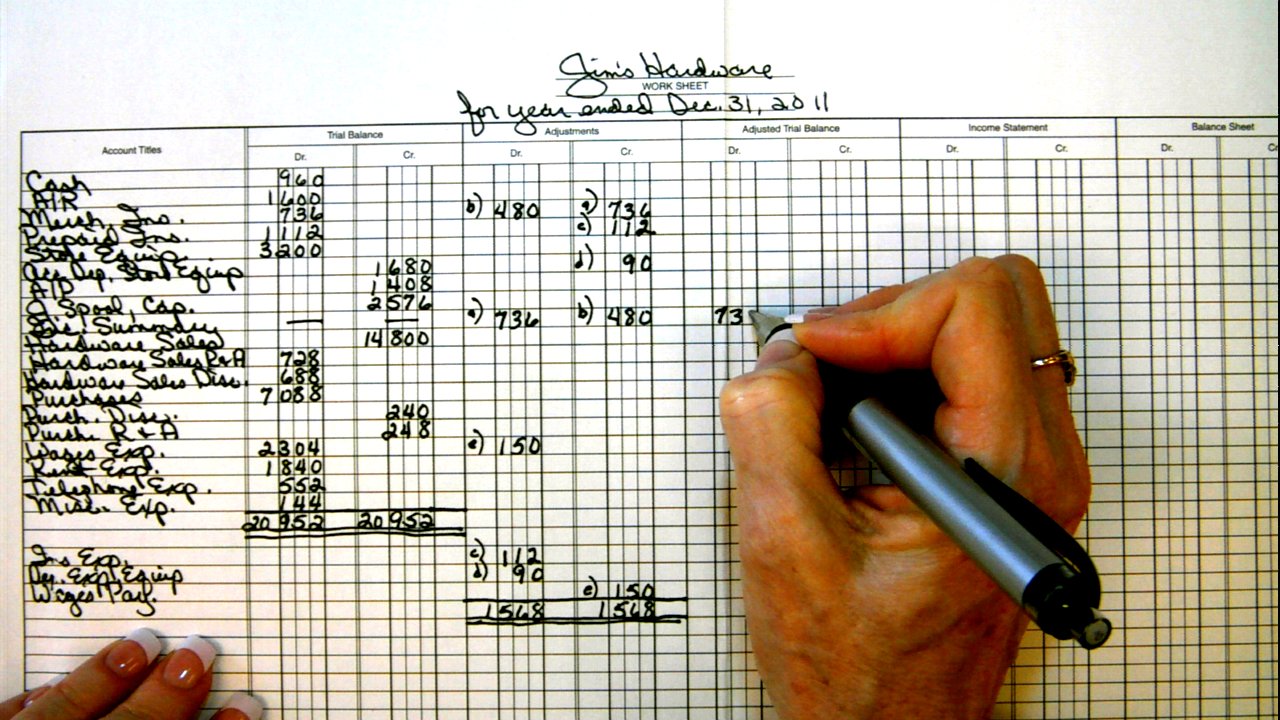 Jim's Hardware
WORK SHEET
for year ended Dec. 31, 2011
Account Titles Trial Balance Adjustments Adjusted Trial Balance Income Statement Balance Sheet
Dr. Cr. Dr. Cr. Dr. Cr. Dr. Cr. Dr. C
Cash 960
A/R 1600
Merch. Inv. 736 b) 480 a) 736
Prepaid Ins. 1112 c) 112
Store Equip. 3200
Acc. Dep. Store Equip 1680 d) 90
A/P 1408
J. Spool, Cap. 2576
Inc. Summary — — a) 736 b) 480 73
Hardware Sales 14800
Hardware Sales R&A 728
Hardware Sales Disc. 688
Purchases 7088
Purch. Disc. 240
Purch. R & A 248
Wages Exp. 2304 e) 150
Rent Exp. 1840
Telephone Exp. 552
Misc. Exp. 144
20952 20952
Ins Exp. c) 112
Dep. Exp. Equip d) 90
Wages Pay. e) 150
1568 1568